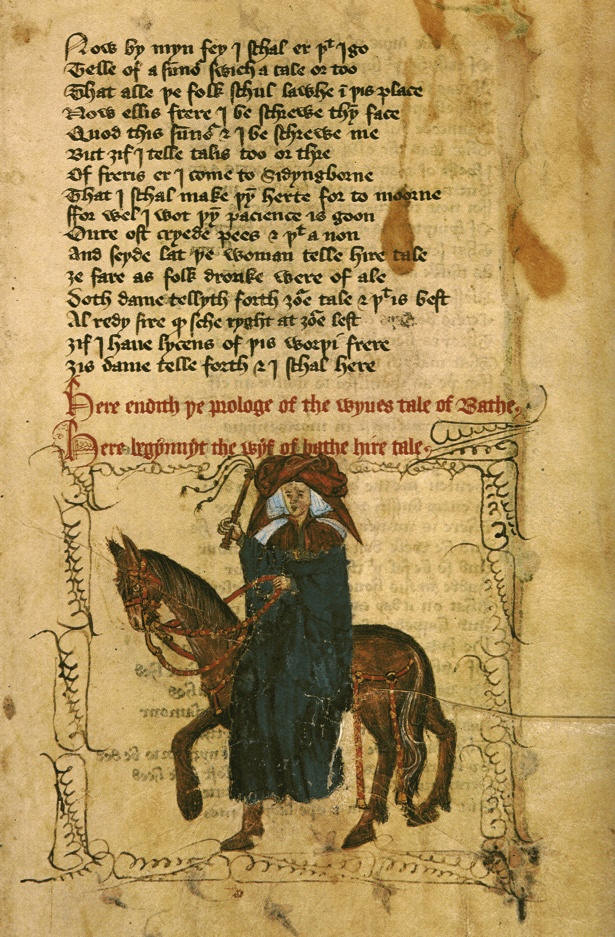 Now by myn fey I schal er þt I go
Telle of a sūnō swich a tale or too
That alle þe folk schul lawhe ī þis place
Now ellis frere I be schrewe thẏ face
Quod this sūnō & I be schrewe me
But ȝif I telle talis too or thre
Of freris er I come to Sidyngborne
That I schal make þẏ herte for to moorne
ffor wel I wot þẏ pacience is goon
Oure ost cryede pees & þt a non
And seyde lat þe woman telle hire tale
ȝe fare as folk dronke were of ale
Doth dame tellyth forth ȝoē tale & þt is best
Al redy sire qƥ sche ryght at ȝoē lest
ȝif I haue lycens of þis worþi frere
ȝis dame telle forth & I schal here
Here endith þe prologe of the wyues tale of Bathe
Here begynnyt the wyf of bathe hire tale